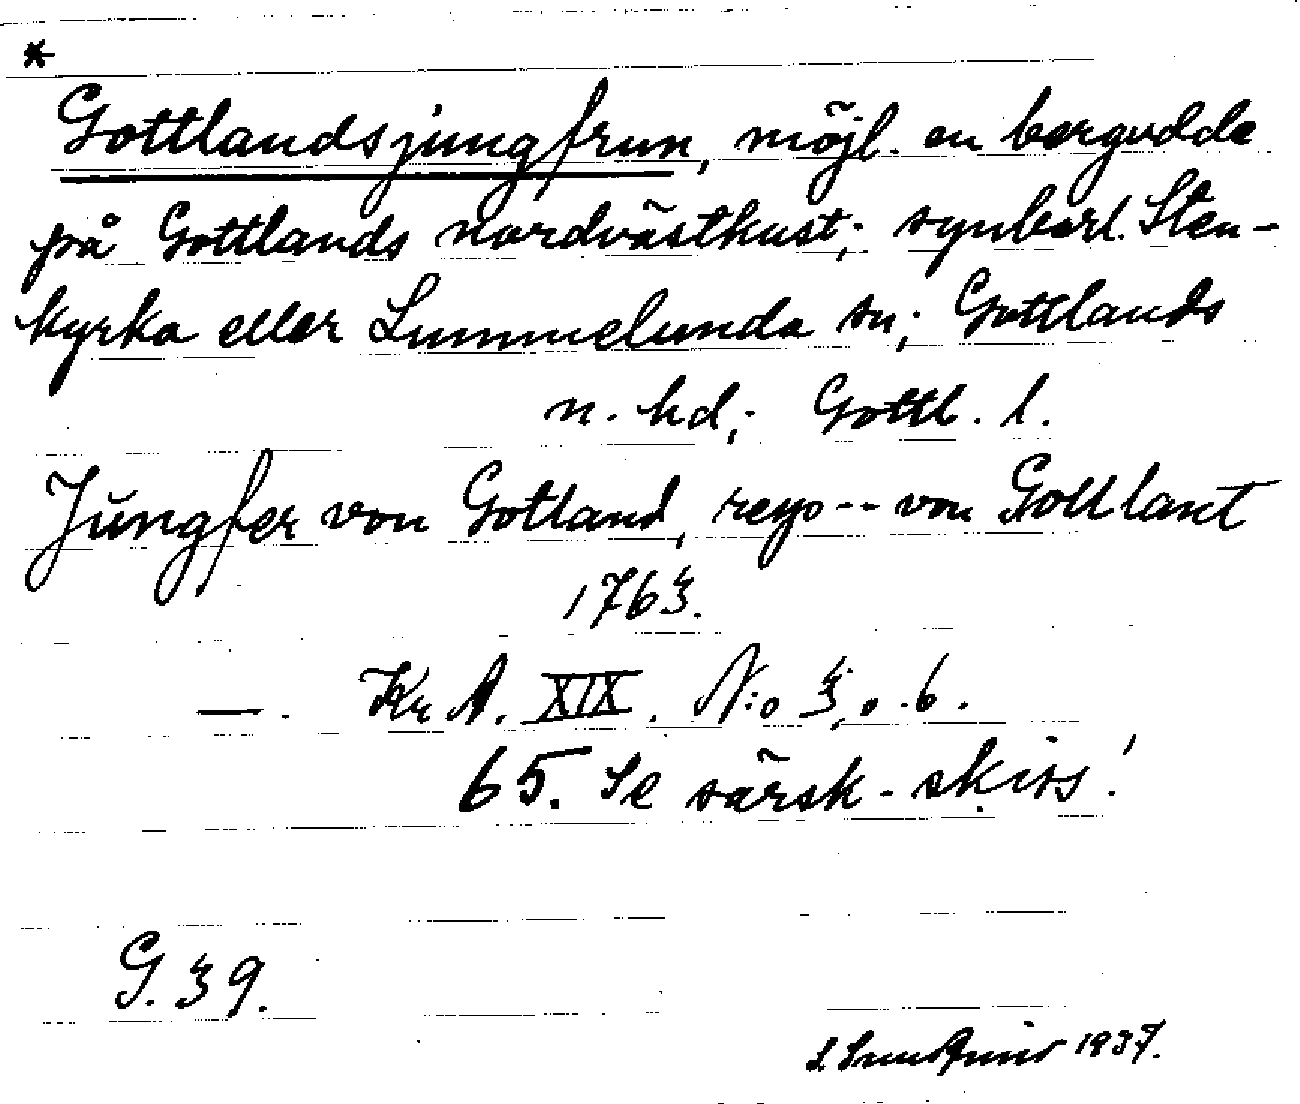 *
Gottlandsjungfrun, möjl. en bergudde
på Gottlands nordvästkust; synbarl. Sten-
kyrka eller Lummelunda sn; Gottlands
n. hd; Gottl. l.
Jüngfer von Gotland, resp -- von Gottlant
1763.
—. Kr A. XIX. N:o 3, o. 6.
65. Se särsk. skiss!
G. 39.
1937.